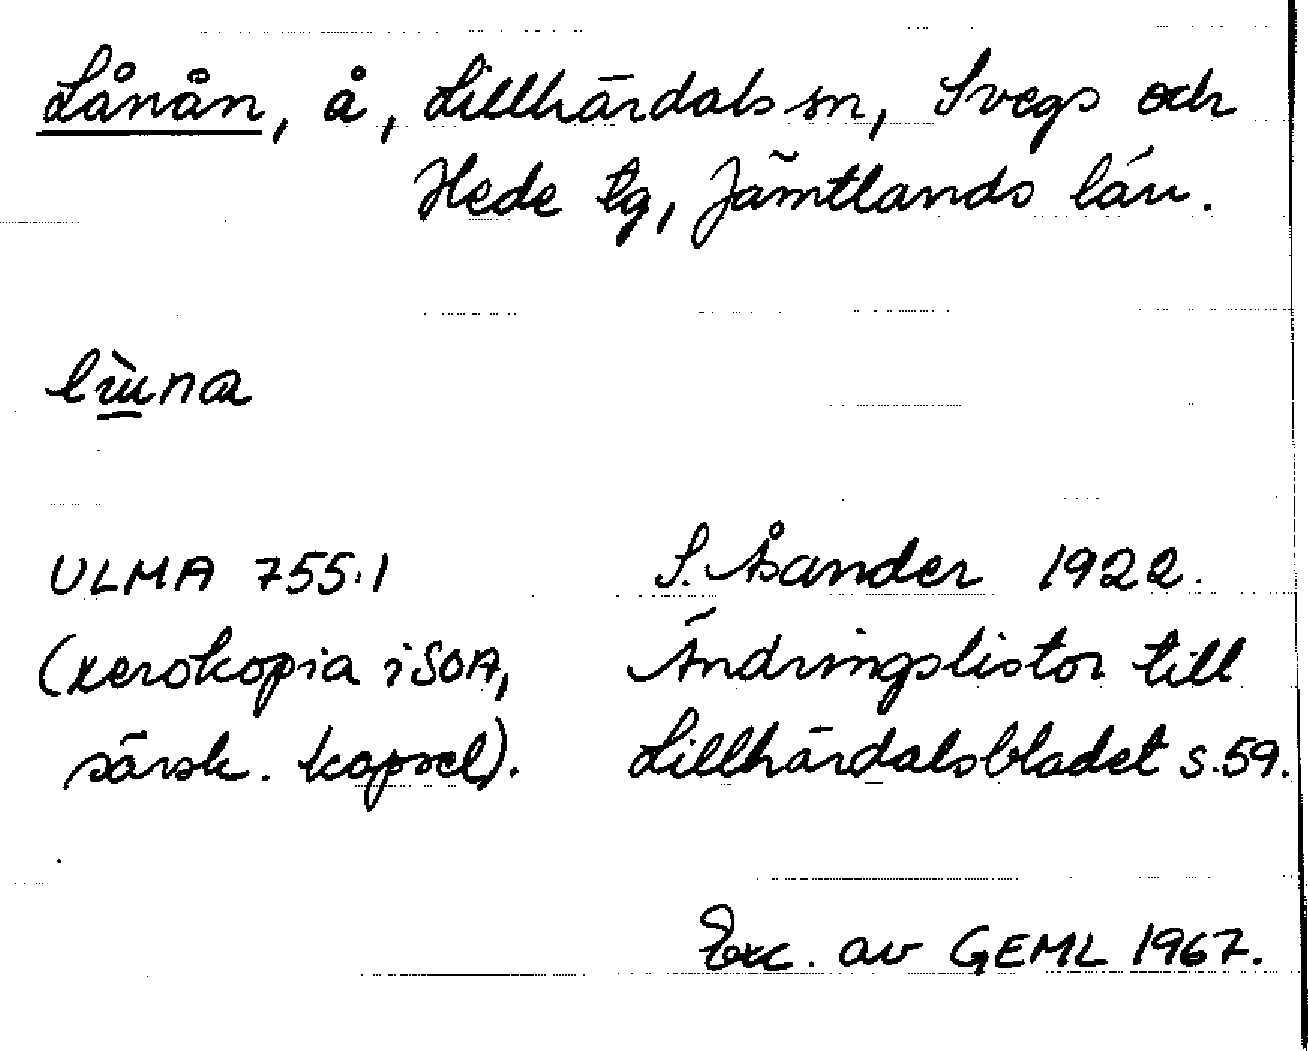 Lånån, å, Lillhärdals sn, Svegs och
Hede tg, Jämtlands län.
ULMA 755:1
(xerokopia i SOA,
särsk. kapsel).
S. Åsander 1922.
Ändringslistor till
Lillhärdalsbladet s. 59.
Exc. av GEML 1967.